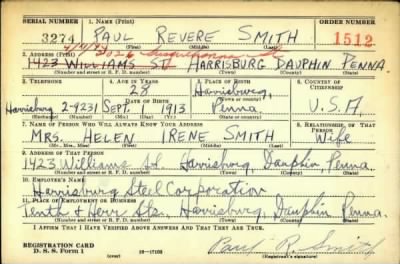 SERIAL NUMBER 1. NAME (Print) ORDER NUMBER
3274 PAUL REVERE SMITH 1512
(First) (Middle) (Last)
2. ADDRESS (Print)
1423 WILLIAMS ST HARRISBURG DAUPHIN PENNA
(Number and street or R. F. D. number) (Town) (County) (State)
3. TELEPHONE 4. AGE IN YEARS 5. PLACE OF BIRTH 6. COUNTRY OF CITIZENSHIP
28 Harrisburg,
DATE OF BIRTH
Harrisburg 2-9231 SEPT. 1 1913 Penna U.S.A.
(Exchange) (Number) (Mo.) (Day) (Yr.) (State or country)
7. NAME OF PERSON WHO WILL ALWAYS KNOW YOUR ADDRESS 8. RELATIONSHIP OF THAT PERSON
MRS. HELEN IRENE SMITH Wife
(Mr., Mrs., Miss) (First) (Middle) (Last)
9. ADDRESS OF THAT PERSON
1423 Williams St. Harrisburg, Dauphin, Penna.
(Number and street or R. F. D. number) (Town) (County) (State)
10. EMPLOYER'S NAME
Harrisburg Steel Corporation
11. PLACE OF EMPLOYMENT OR BUSINESS
Tenth & Herr Sts., Harrisburg, Dauphin Penna.
(Number and street or R. F. D. number) (Town) (County) (State)
I AFFIRM THAT I HAVE VERIFIED ABOVE ANSWERS AND THAT THEY ARE TRUE.
REGISTRATION CARD
D. S. S. Form 1 (over) 16-17105
Paul R. Smith
(Registrant's signature)